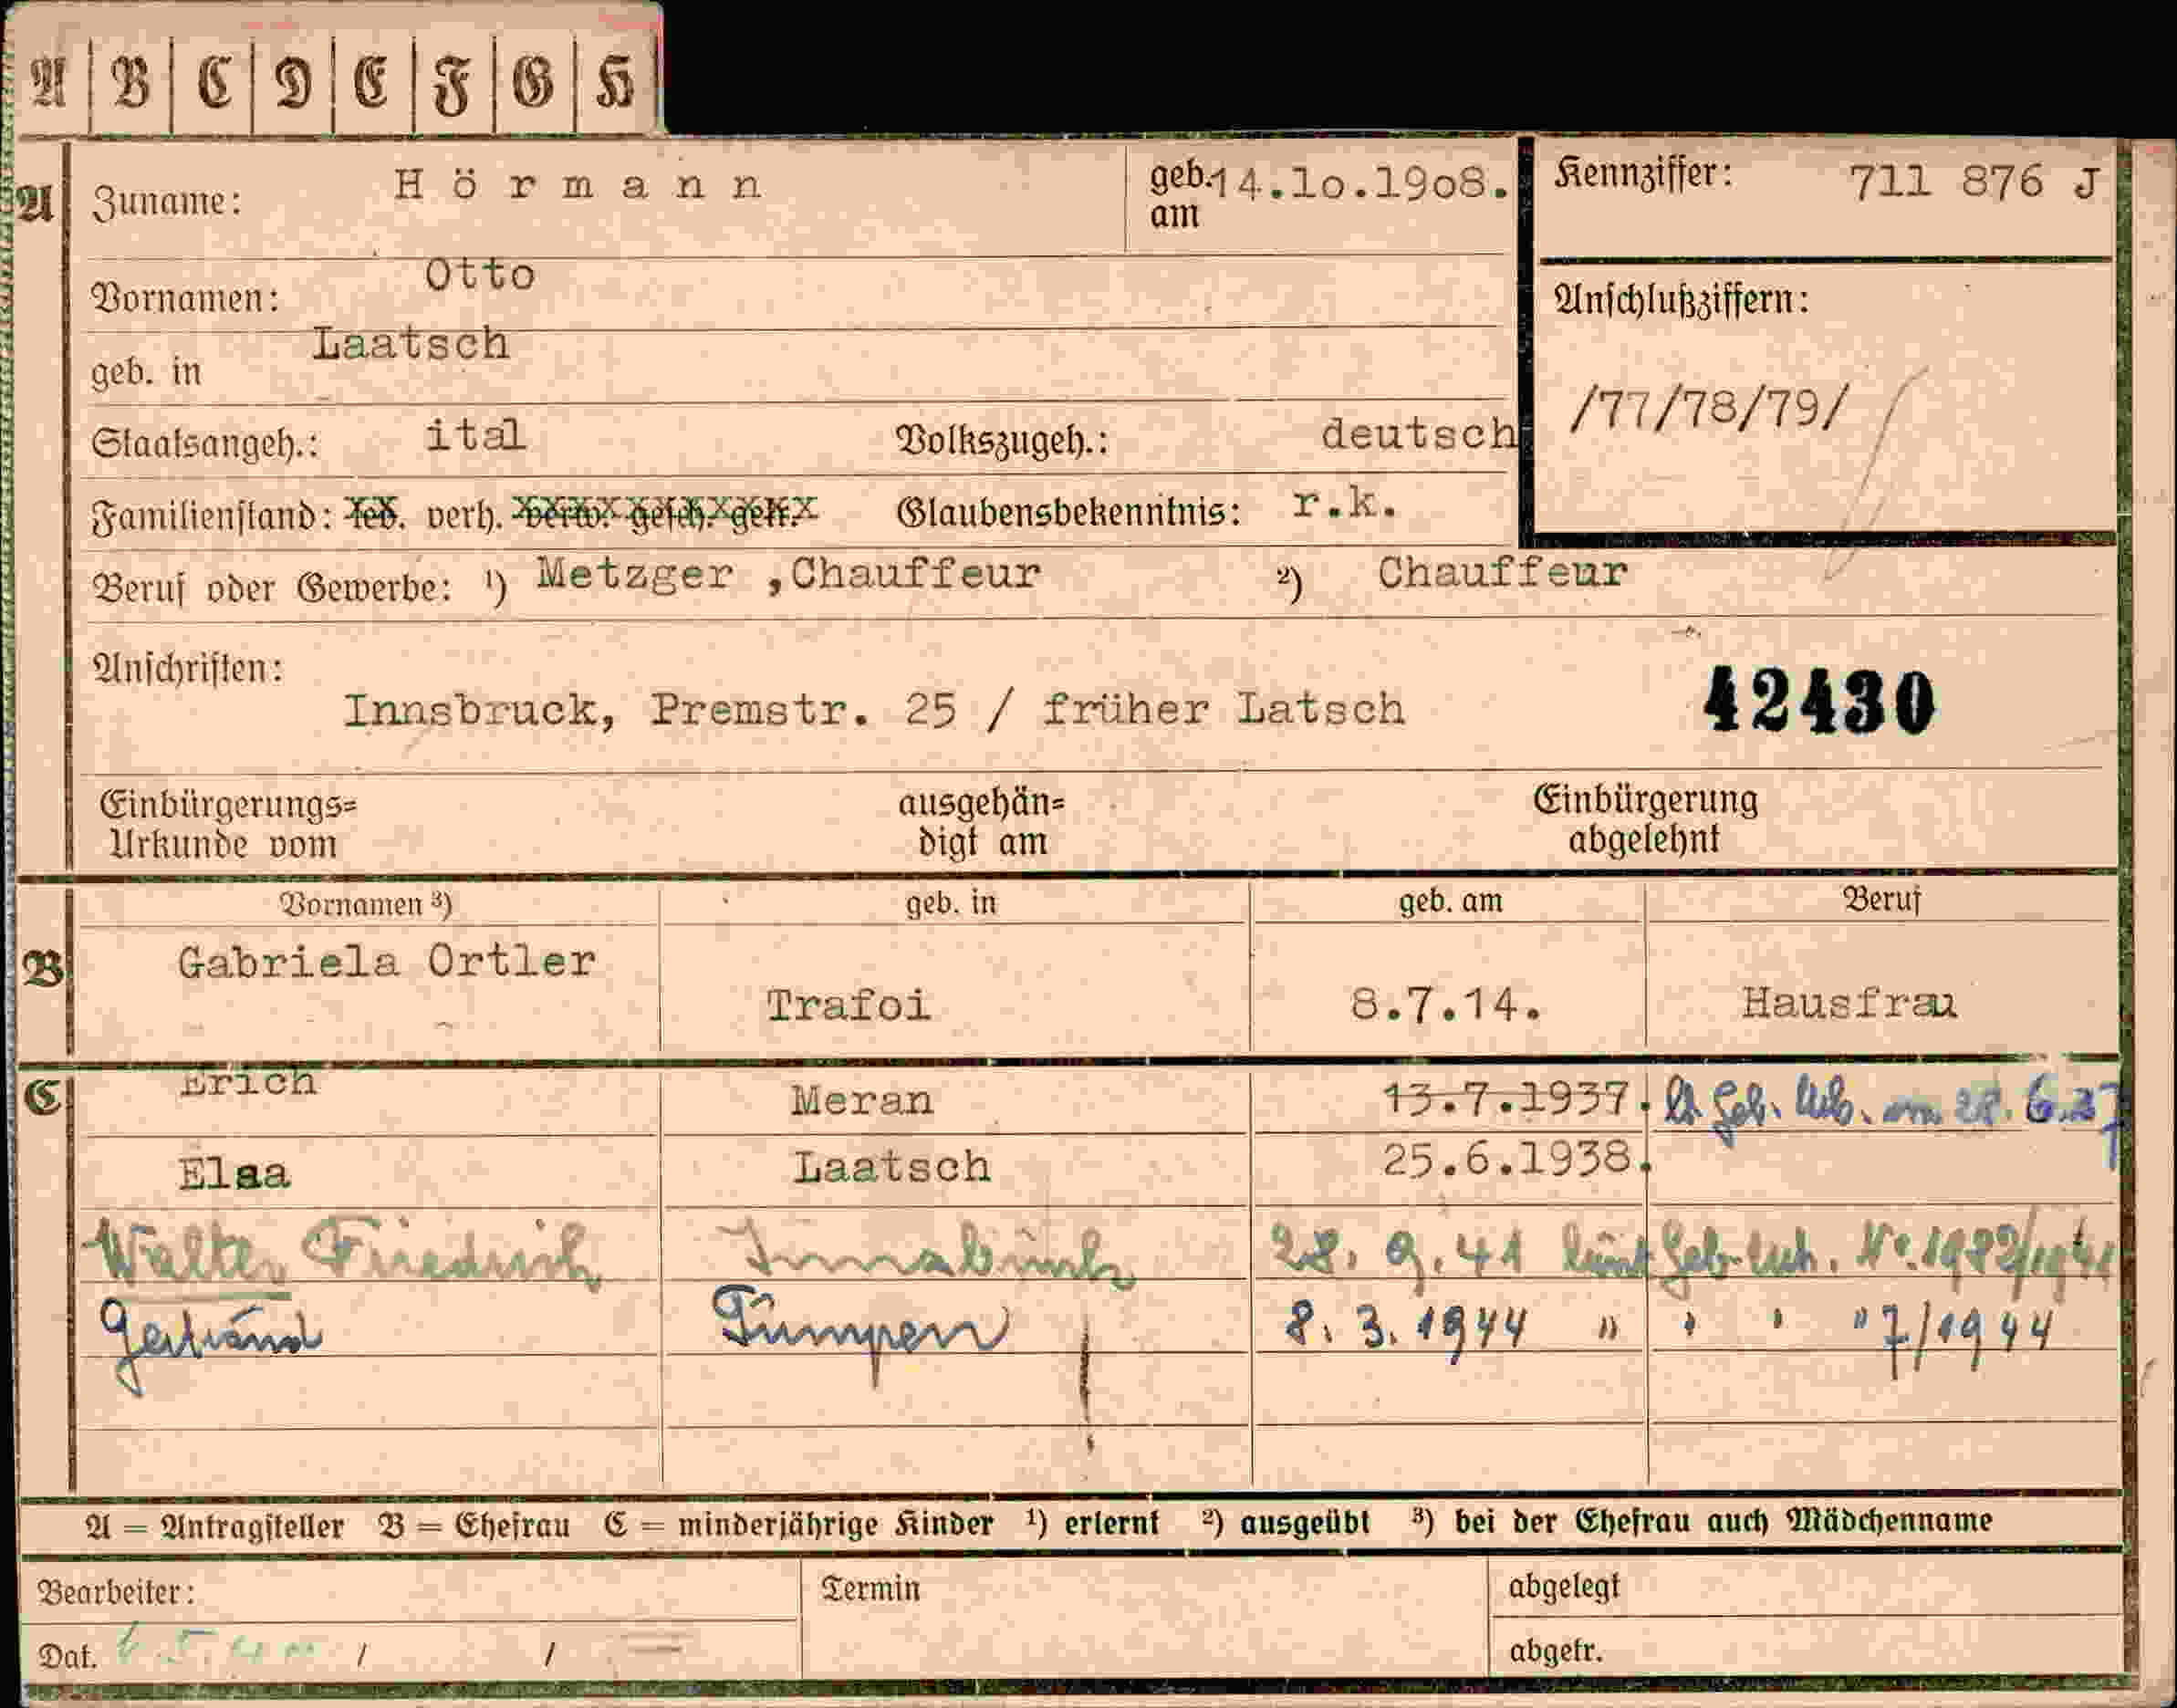 A B C D E F G H
A Zuname: Hörmann geb. am 14.10.1908. Kennziffer: 711 876 J
Vornamen: Otto Anschlußziffern:
geb. in Laatsch /77/78/79/
Staatsangeh.: ital Volkszugeh.: deutsch
Familienstand: led. verh. verw. gesch. getr. Glaubensbekenntnis: r.k.
Beruf oder Gewerbe: ¹) Metzger ,Chauffeur ²) Chauffeur
Anschriften: 42430
Innsbruck, Premstr. 25 / früher Latsch
Einbürgerungs= ausgehän= Einbürgerung
Urkunde vom digt am abgelehnt
Vornamen ³) geb. in geb. am Beruf
B Gabriela Ortler
Trafoi 8.7.14. Hausfrau
C Erich Meran 13.7.1937. Geb. Urk. 6.37
Elsa Laatsch 25.6.1938.
Walter Friedrich Innsbruck 28. 9. 41 laut Geb. Urk. Nr. 1982/1941
Gertraud Tumpen 8. 3. 1944 " " " " 7/1944
A = Antragsteller B = Ehefrau C = minderjährige Kinder ¹) erlernt ²) ausgeübt ³) bei der Ehefrau auch Mädchenname
Bearbeiter: Termin abgelegt
Dat. / / abgetr.